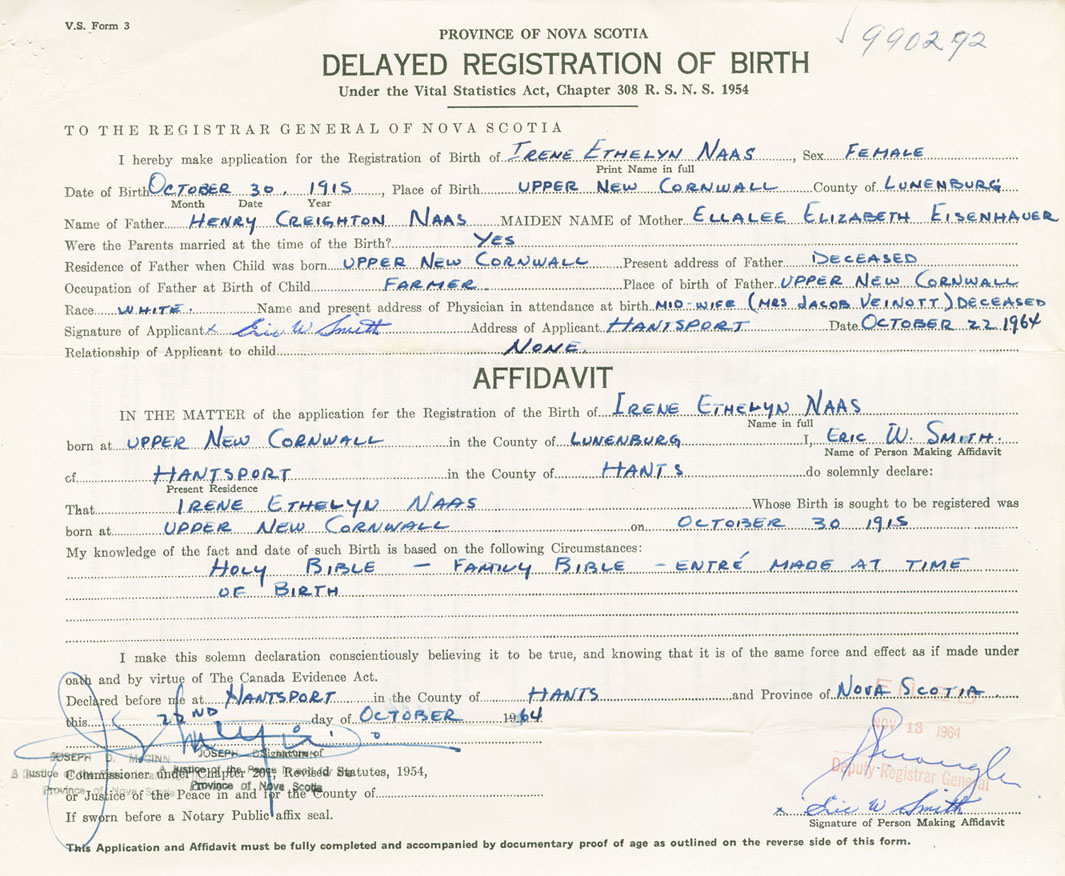 V.S. Form 3
990292
PROVINCE OF NOVA SCOTIA
DELAYED REGISTRATION OF BIRTH
Under the Vital Statistics Act, Chapter 308 R. S. N. S. 1954
TO THE REGISTRAR GENERAL OF NOVA SCOTIA
I hereby make application for the Registration of Birth of IRENE ETHELYN NAAS, Sex FEMALE
Print Name in full
Date of Birth OCTOBER 30. 1915, Place of Birth UPPER NEW CORNWALL County of LUNENBURG
Month Date Year
Name of Father HENRY CREIGHTON NAAS MAIDEN NAME of Mother ELLALEE ELIZABETH EISENHAUER
Were the Parents married at the time of the Birth? YES
Residence of Father when Child was born UPPER NEW CORNWALL Present address of Father DECEASED
Occupation of Father at Birth of Child FARMER Place of birth of Father UPPER NEW CORNWALL
Race WHITE. Name and present address of Physician in attendance at birth MID-WIFE (MRS JACOB VEINOTT) DECEASED
Signature of Applicant x Eric W Smith Address of Applicant HANTSPORT Date OCTOBER 22 1964
Relationship of Applicant to child NONE.
AFFIDAVIT
IN THE MATTER of the application for the Registration of the Birth of IRENE ETHELYN NAAS
Name in full
born at UPPER NEW CORNWALL in the County of LUNENBURG I, ERIC W. SMITH.
Name of Person Making Affidavit
of HANTSPORT in the County of HANTS do solemnly declare:
Present Residence
That IRENE ETHELYN NAAS Whose Birth is sought to be registered was
born at UPPER NEW CORNWALL on OCTOBER 30 1915
My knowledge of the fact and date of such Birth is based on the following Circumstances:
HOLY BIBLE - FAMILY BIBLE - ENTRÉ MADE AT TIME
OF BIRTH
I make this solemn declaration conscientiously believing it to be true, and knowing that it is of the same force and effect as if made under
oath and by virtue of The Canada Evidence Act.
Declared before me at HANTSPORT in the County of HANTS and Province of NOVA SCOTIA
this 22ND day of OCTOBER 1964
NOV 13 1964
JOSEPH D. McGINN JOSEPH Signature of
A Justice of the Peace in
Commissioner under Chapter 201, Revised Statutes, 1954,
Province of Nova Scotia Province of Nova Scotia
Deputy Registrar General
or Justice of the Peace in and for the County of
x Eric W Smith
If sworn before a Notary Public affix seal.
Signature of Person Making Affidavit
This Application and Affidavit must be fully completed and accompanied by documentary proof of age as outlined on the reverse side of this form.